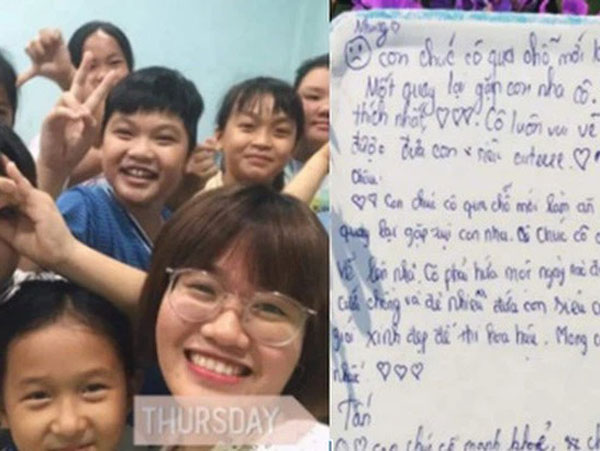 THURSDAY
Nhung
con chúc cô qua chỗ mới
Một quay lại gặp con nha cô.
thích nhất ♡♡♡. Cô luôn vui vẻ
được đứa con siêu cuteee. ♡
Châu:
♡♡ Con chúc cô qua chỗ mới làm ăn
quay lại gặp tụi con nha. Chúc cô
vẻ lên nha. Cô phải hứa mỗi ngày
chồng và đẻ nhiều đứa con siêu
giỏi xinh đẹp để thi hoa hậu. Mong
nhất ♡♡♡
Tấn
♡ con chúc cô mạnh khoẻ,